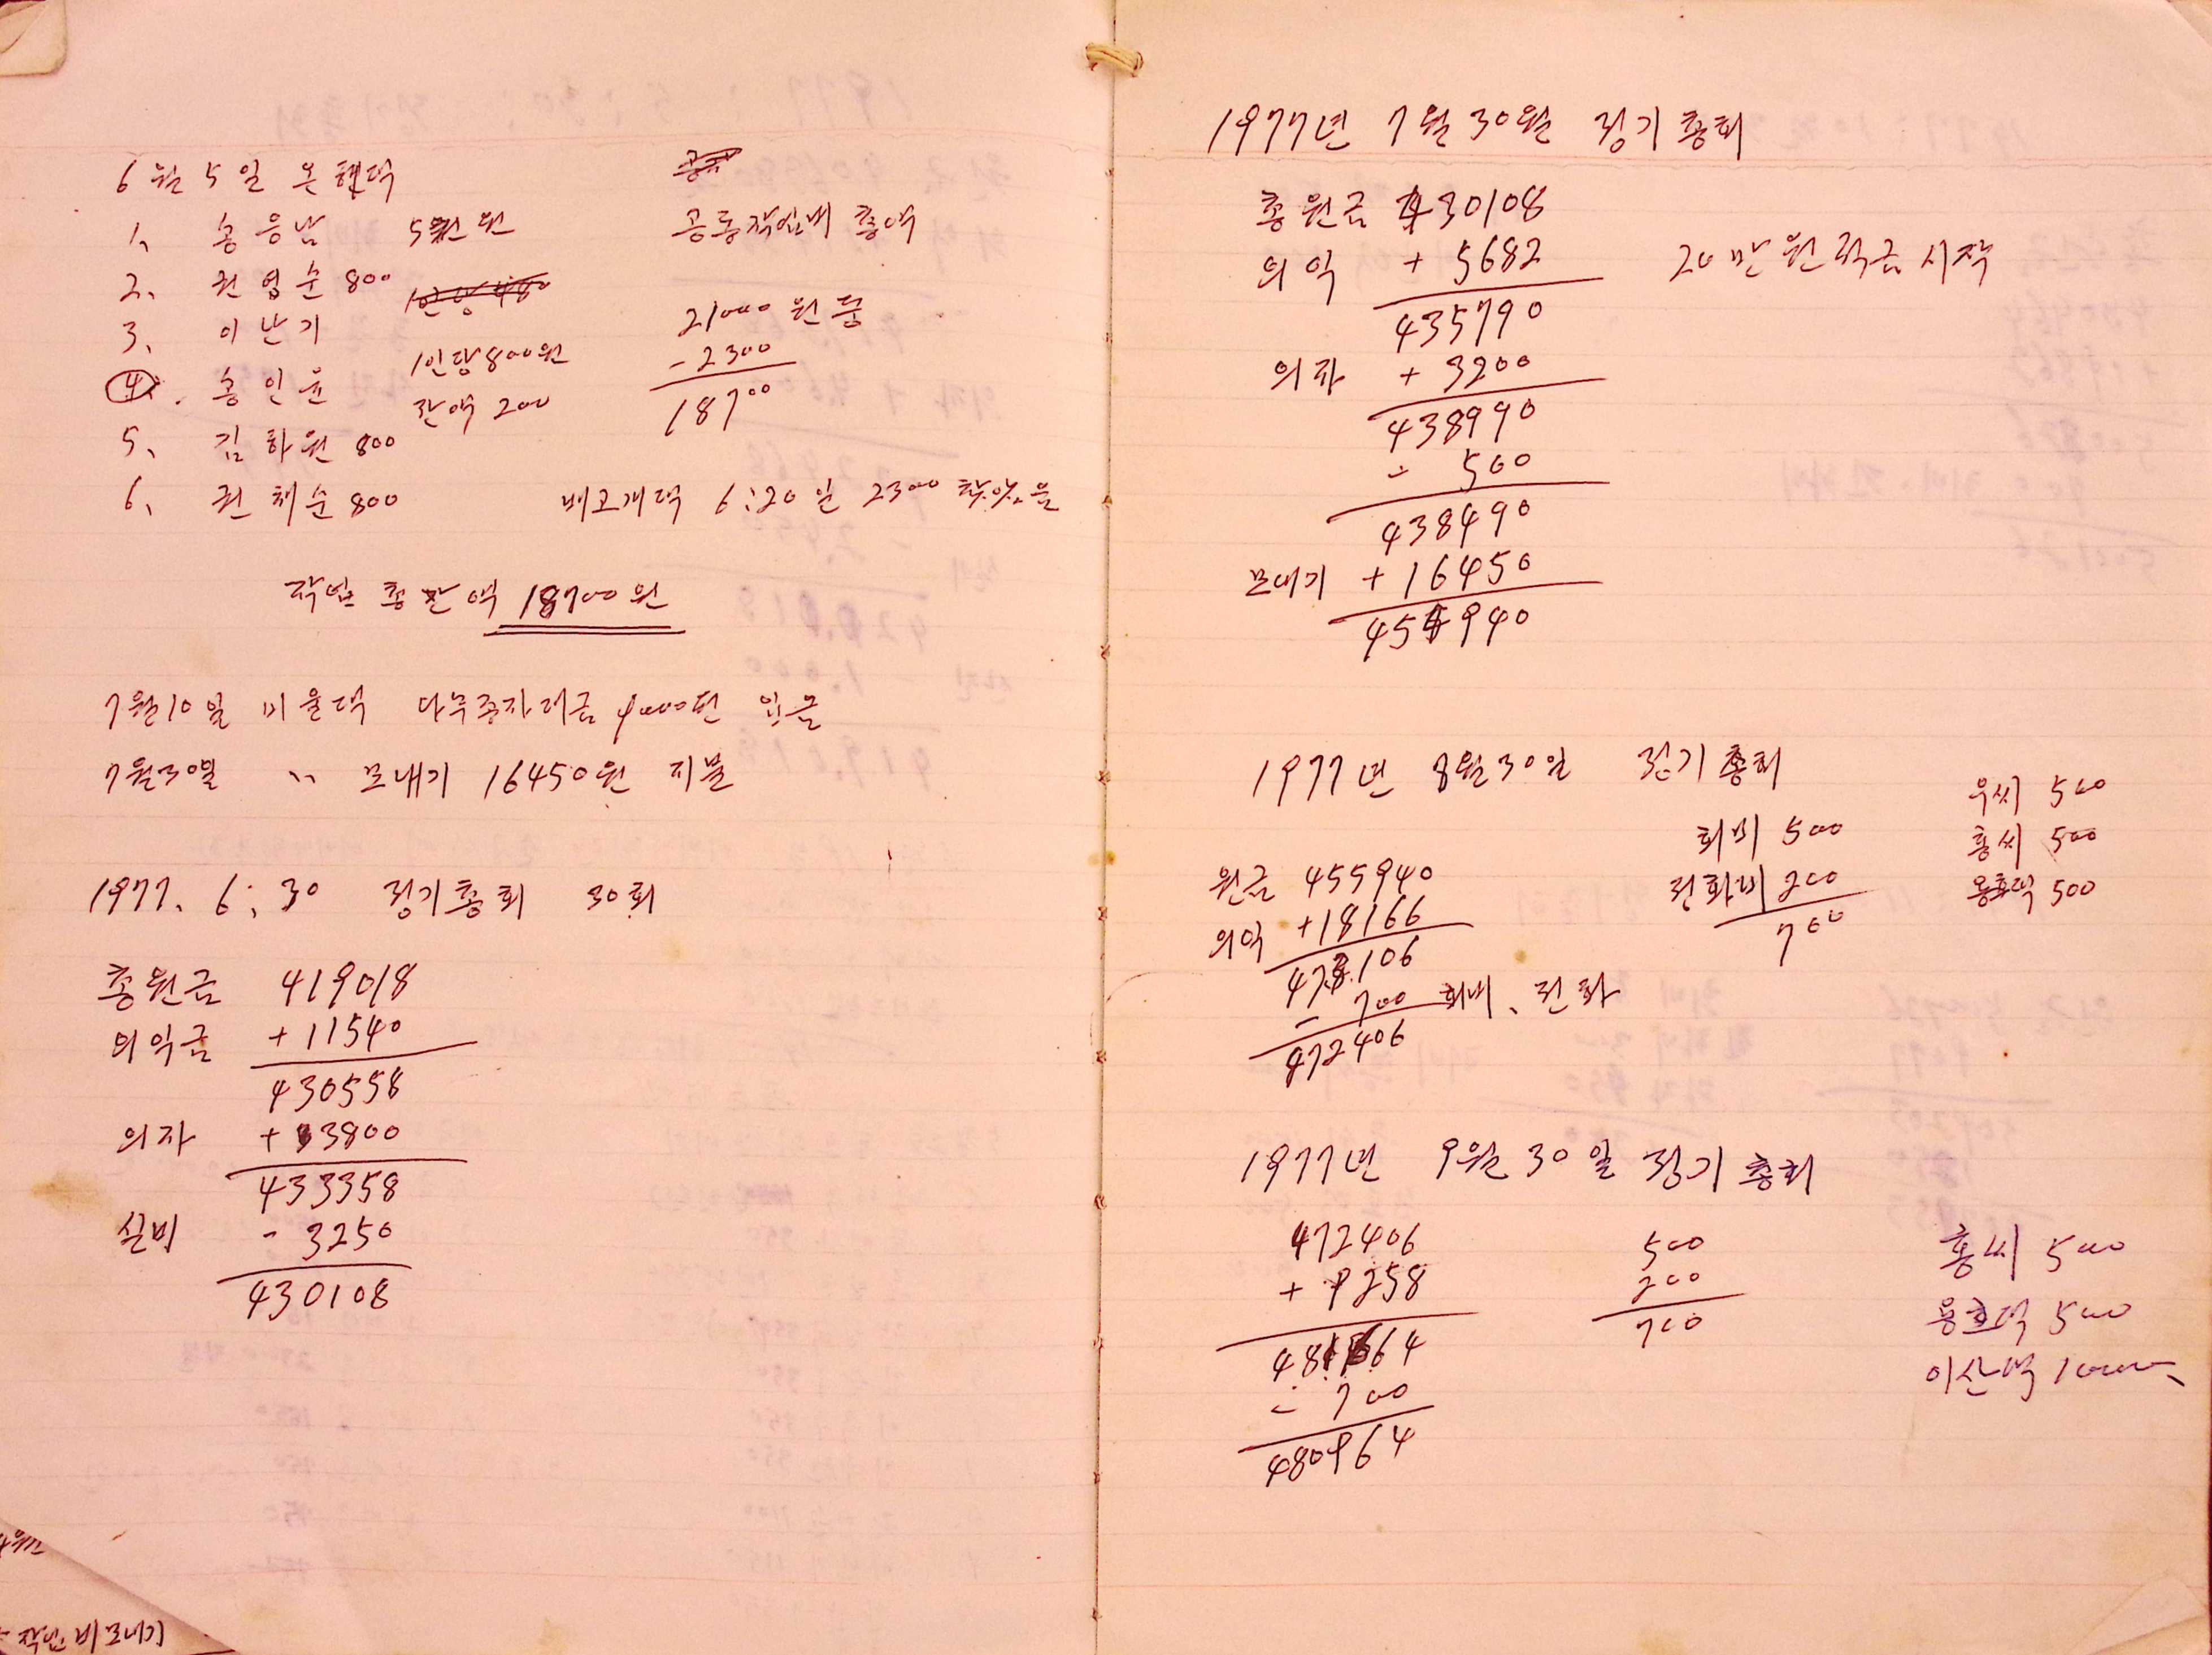 6월 5일 온혜댁
1. 송응남 5천원
2. 권영순 800
3. 이난기
1인당 800원
④. 송인윤
잔액 200
5. 김하원 800
6. 권채순 800
공동작업비 총액
21000 원 중
- 2300
18700
배고개댁 6:20일 2300 찾았음
작업 총 잔액 18700 원
7월10일 미울댁 나무종자대금 4000원 입금
7월30일 〃 모내기 16450원 지불
1977. 6:30 정기총회 30회
총원금 419018
의익금 + 11540
430558
의자 + 3800
433358
실비 - 3250
430108
작업비 모내기
1977년 7월 30월 정기총회
총원금 430108
의익 + 5682
435790
20만원 적금 시작
의자 + 3200
438990
- 500
438490
모내기 + 16450
454940
1977년 8월30일 정기총회
원금 455940
의익 +18166
473106
- 700 회비、전화
472406
회비 500
전화비 200
700
우씨 500
홍씨 500
용효댁 500
1977년 9월 30일 정기총회
472406
+ 9258
481664
- 700
480964
500
200
700
홍씨 500
용효댁 500
이산댁 10000